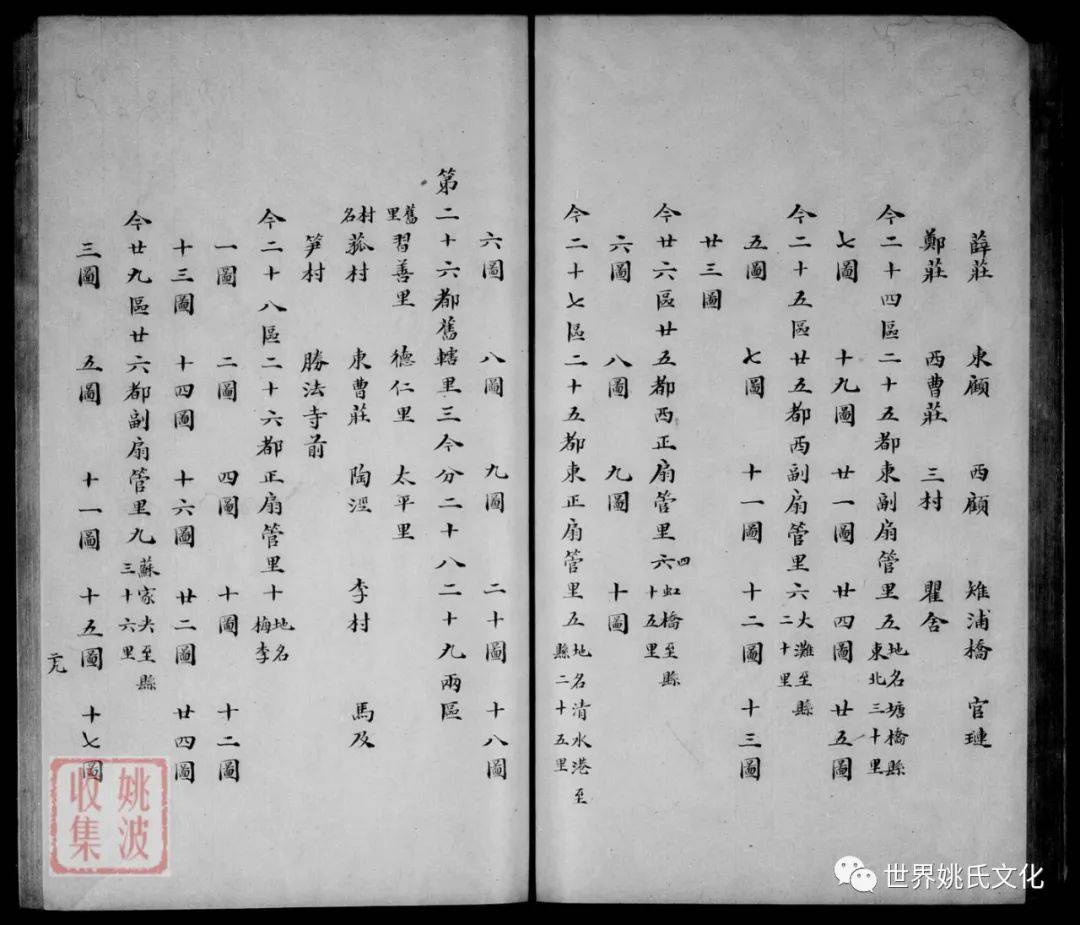 薛莊 東顧 西顧 雉浦橋 官璉
鄭莊 西曹莊 三村 瞿舍
今二十四區二十五都東副扇管里五地名塘橋縣東北三十里
七圖 十九圖 廿一圖 廿四圖 廿五圖
今二十五區廿五都西副扇管里六大灘至縣二十里
五圖 七圖 十一圖 十二圖 十三圖
廿三圖
今廿六區廿五都西正扇管里六四虹橋至縣十五里
六圖 八圖 九圖 十圖
今二十七區二十五都東正扇管里五地名清水港至縣二十五里
六圖 八圖 九圖 二十圖 十八圖
第二十六都舊轄里三今分二十八二十九兩區
舊里習善里 德仁里 太平里
村名菰村 東曹莊 陶涇 李村 馬及
笋村 勝法寺前
今二十八區二十六都正扇管里十地名梅李
一圖 二圖 四圖 十圖 十二圖
十三圖 十四圖 十六圖 廿二圖 廿四圖
今廿九區廿六都副扇管里九蘇家尖至縣三十六里
三圖 五圖 十一圖 十五圖 十七圖
姚波收集
世界姚氏文化